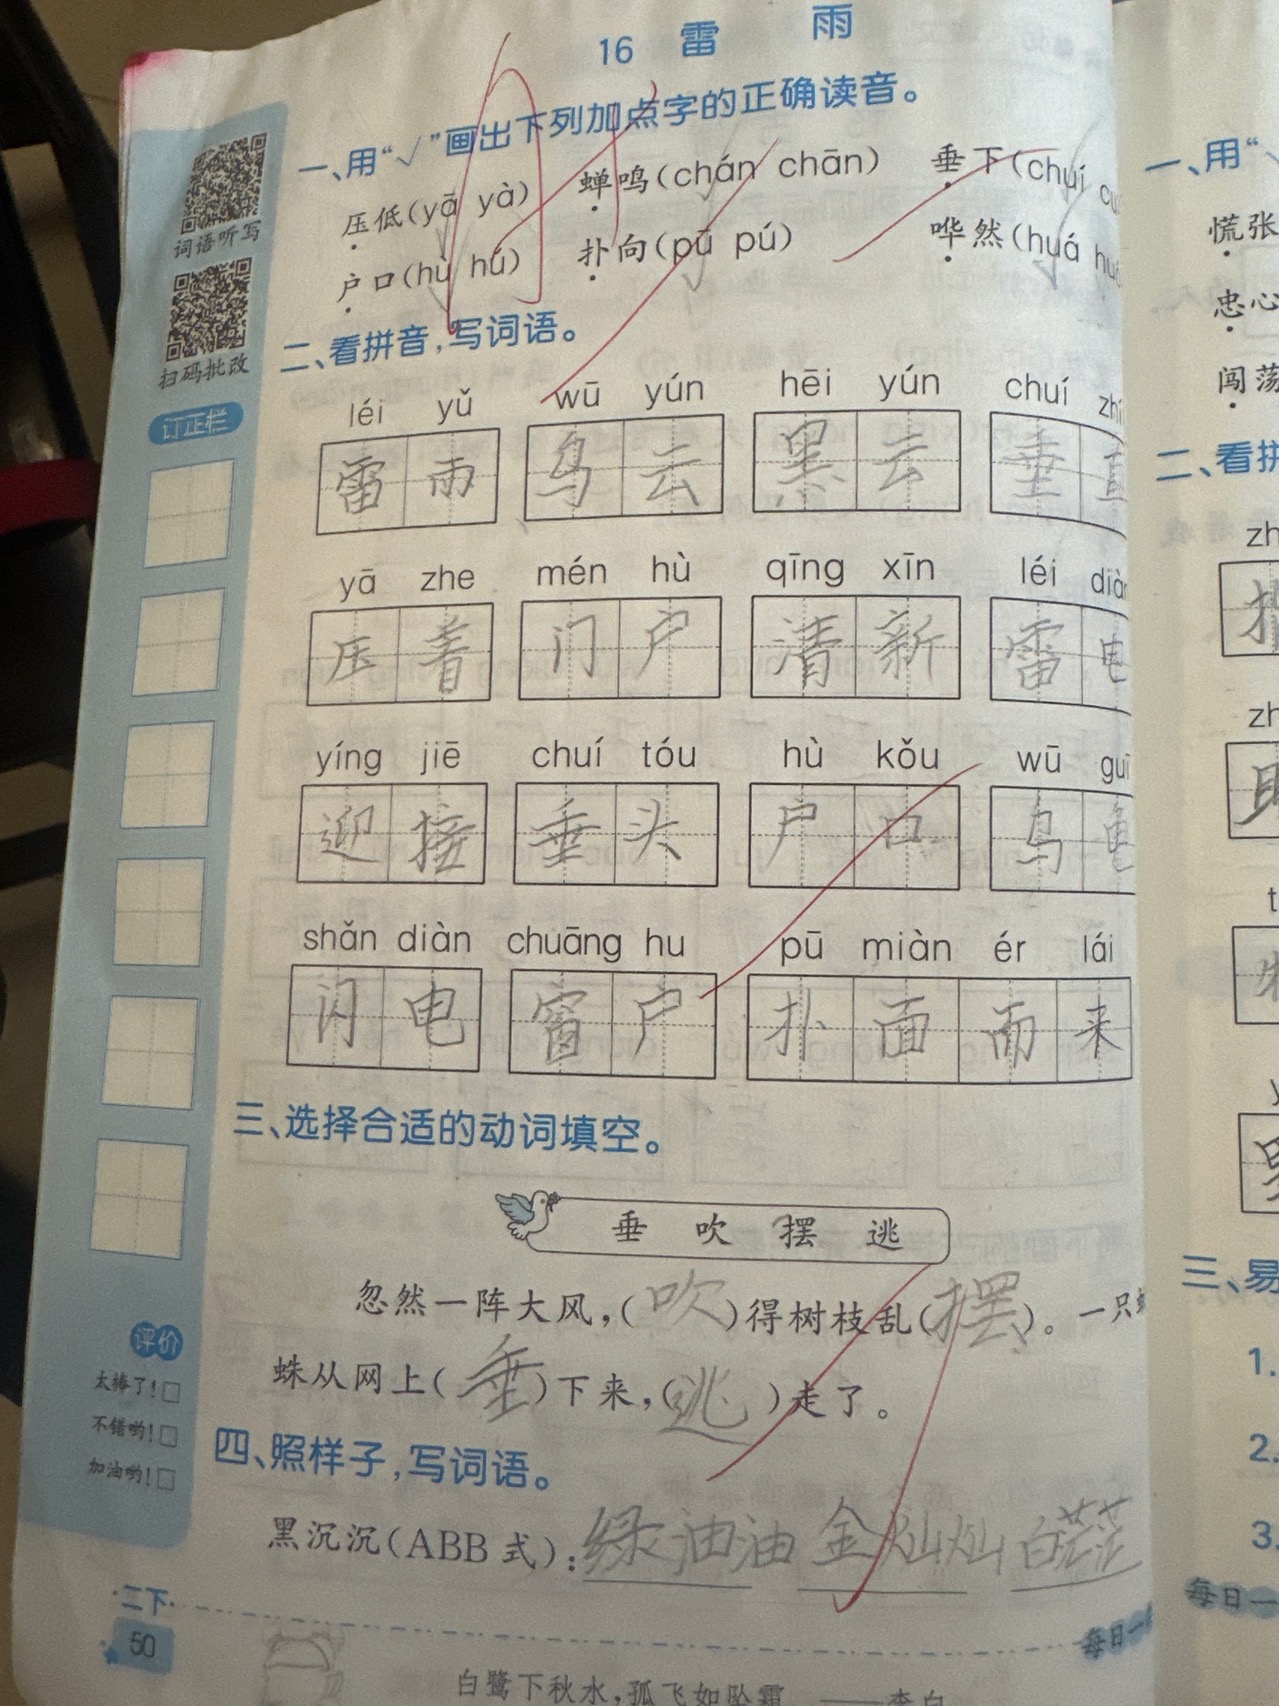 16 雷雨
一、用“√”画出下列加点字的正确读音。
压低(yā yà) 蝉鸣(chán chān) 垂下(chuí
户口(hù hú) 扑向(pū pú) 哗然(huá
词语听写
扫码批改
订正栏
二、看拼音,写词语。
léi yǔ wū yún hēi yún chuí
雷雨 乌云 黑云 垂直
yā zhe mén hù qīng xīn léi diàn
压着 门户 清新 雷电
yíng jiē chuí tóu hù kǒu wū guī
迎接 垂头 户口 乌龟
shǎn diàn chuāng hu pū miàn ér lái
闪电 窗户 扑面而来
三、选择合适的动词填空。
垂 吹 摆 逃
忽然一阵大风,(吹)得树枝乱(摆)。一只
蛛从网上(垂)下来,(逃)走了。
四、照样子,写词语。
黑沉沉(ABB式):绿油油 金灿灿 白茫茫
评价
太棒了!
不错哟!
加油哟!
二下
50
每日一
白鹭下秋水,孤飞如坠霜——李白
一、用“
慌张
忠心
闯荡
二、看拼
zh
zh
t
三、易
1.
2.
3.
每日一